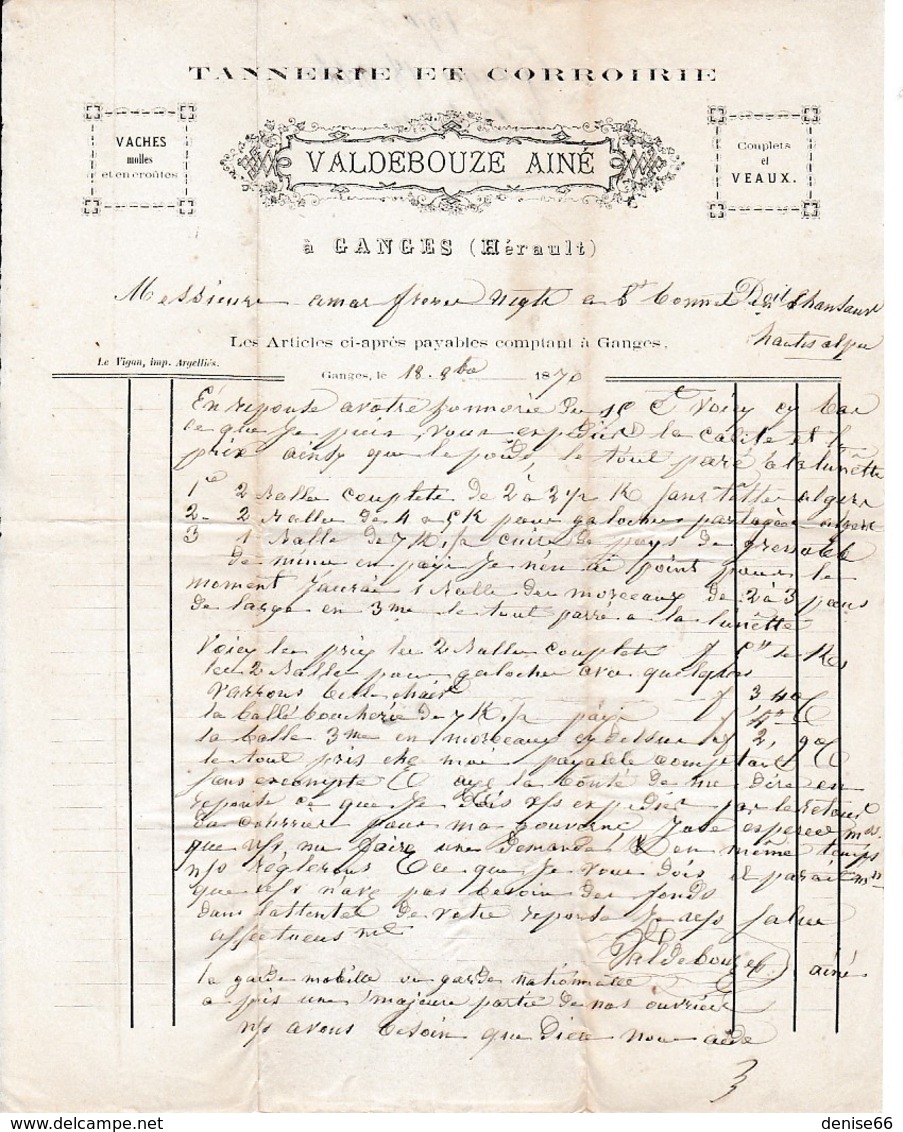 TANNERIE ET CORROIRIE
VACHES
molles
et en croûtes
VALDEBOUZE AINÉ
Couplets
et
VEAUX.
à GANGES (Hérault)
Messieurs amar frere negts a St Bonnet Doit en Chansaur
hautes alpes
Les Articles ci-après payables comptant à Ganges.
Le Vigan, imp. Argelliès.
Ganges, le 18. 9bre 1870
En reponse a votre honnorée du 15 Ct Voicy cy bas
ce que Je puis vous expedier la calité et le
prix ainsy que le poids, le tout paré a la lunette
1re 2 Balles couplets de 2 à 2 1/2 K sans tette alger
2- 2 Balles de 4 a 5 K pour galoches partagée alger
3 1 Balle de 7 K. 1/2 cuirs de pays de grenoble
de mince en pays Je n'en ai point pour le
moment J'aurai 1 Balle de morceaux de 2 à 3 pans
de large en 3me le tout parré a la lunette
Voicy les prix les 2 Balles couplets f 5 " le Ko
les 2 Balles pour galoches avec quelques
varrons belle chair f 3 40
la balle boucherie de 7 K. 1/2 pays f 4 "
la balle 3me en morceaux cy dessus f 2, 90
le tout pris chez moi payable comptant
sans escompte & ayez la bonté de me dire en
reponse ce que Je dois vs expedier par le retour
du courrier pour ma gouverne J'ose esperer mrs
que vs me faire une demande & en même temps
ns réglerons ce que Je vous dois il parait mrs
que vs n'avez pas besoin de fonds
dans l'attente de votre reponse Je vs salue
affectueusmt
Valdebouze ainé
la garde mobille ou garde nationnalle
a pris une majeure partie de nos ouvriers
ns avons besoin que Dieu nous aide
denise66